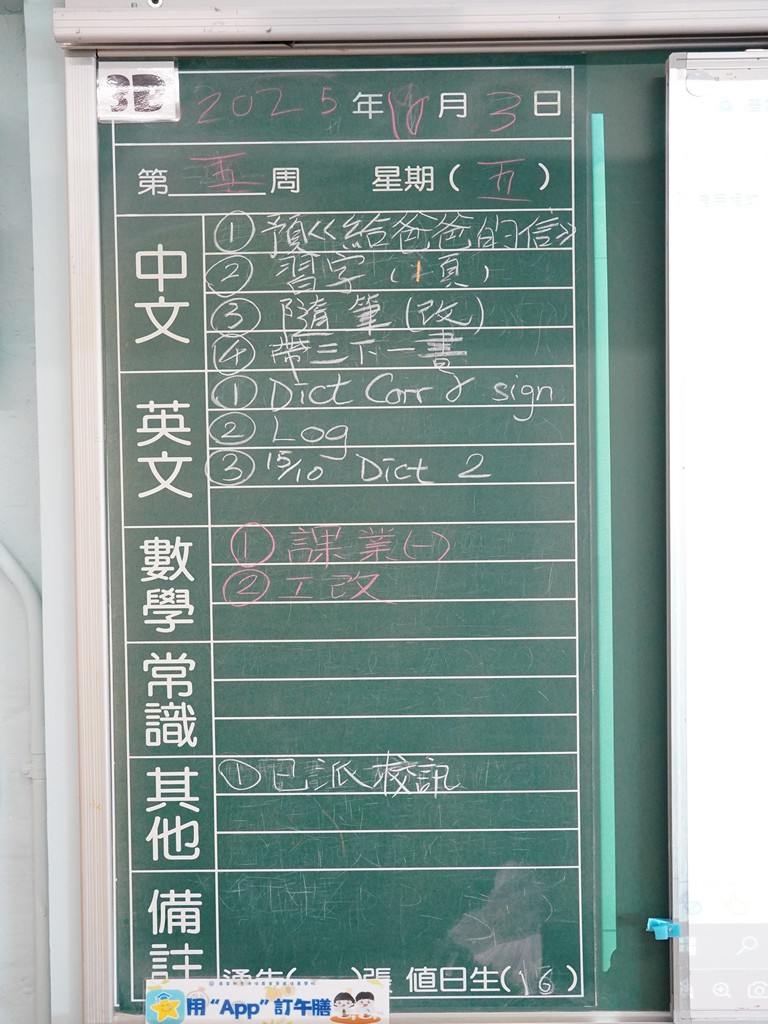 3D
2025年10月3日
第五周 星期(五)
中文
① 預《給爸爸的信》
② 習字(1頁)
③ 隨筆(改)
④ 帶三下一書
英文
① Dict Corr & sign
② Log
③ 15/10 Dict 2
數學
① 課業(一)
② 工改
常識
其他
① 已派校訊
備註
通告( )張 值日生(16)
用“App”訂午膳